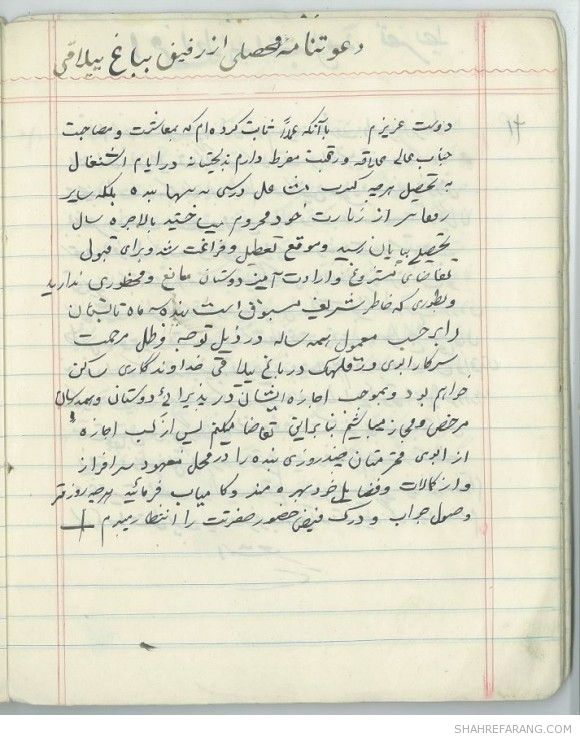 دعوتنامه محصلی از رفیق بباغ ییلاقی
۱۴
دوست عزیزم با آنکه عملاً ثابت کرده‌ام که بمعاشرت و مصاحبت
جناب عالی علاقه و رغبت مفرط دارم بدبختانه در ایام اشتغال
به تحصیل هر چه کثرت مشاغل درسی نه تنها بنده بلکه سایر
رفقا را از زیارت خود محروم میساختید بالاخره سال
تحصیلی بپایان رسید و موقع تعطیل و فراغت شد و برای قبول
تقاضای مشروع و ارادت آمیز دوستان مانع و محظوری ندارید
و بطوری که خاطر شریف مسبوق است بنده سه ماه تابستان
را بر حسب معمول همه ساله در ذیل توجه و ظل مرحمت
سرکار ابوی در قلهک در باغ ییلاقی خداوندگاری ساکن
خواهم بود و بموجب اجازه ایشان در پذیرائی دوستان و همدرسان
مرخص و مجاز میباشم بنابراین تقاضا میکنم پس از کسب اجازه
از ابوی محترمتان چند روزی بنده را در محل معهود سرافراز
و از کمالات و فضایل خود بهره مند و کامیاب فرمائید هر چه زودتر
وصول جواب و درک فیض حضور حضرتت را انتظار میبرم
SHAHREFARANG.COM